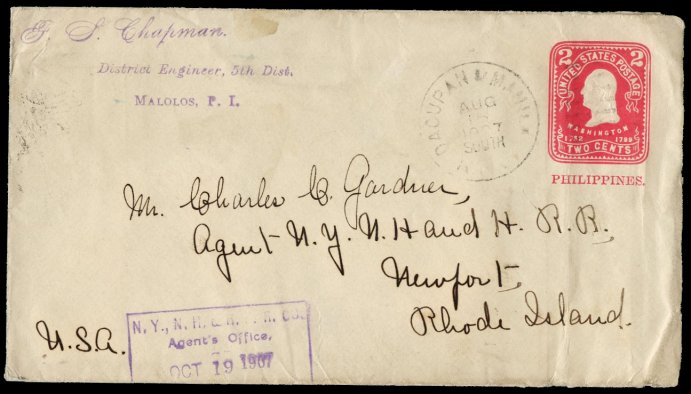 F. S. Chapman.
District Engineer, 5th Dist.
MALOLOS, P. I.
DAGUPAN & MANILA
AUG
1907
SOUTH
2 2
UNITED STATES POSTAGE
WASHINGTON
1732 1799
TWO CENTS
PHILIPPINES.
Mr. Charles C. Gardner,
Agent N. Y. N. H and H. R. R.
Newport,
Rhode Island.
U.S.A.
N. Y., N. H. & H.
Agent's Office,
OCT 19 1907